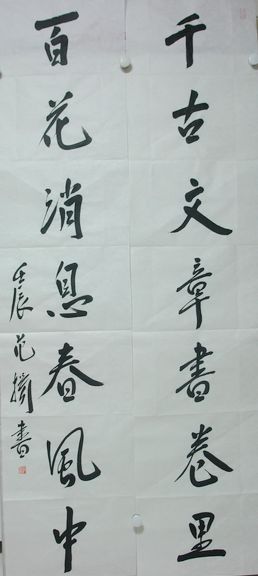 千古文章書卷里
百花消息春風中
壬辰 范 書